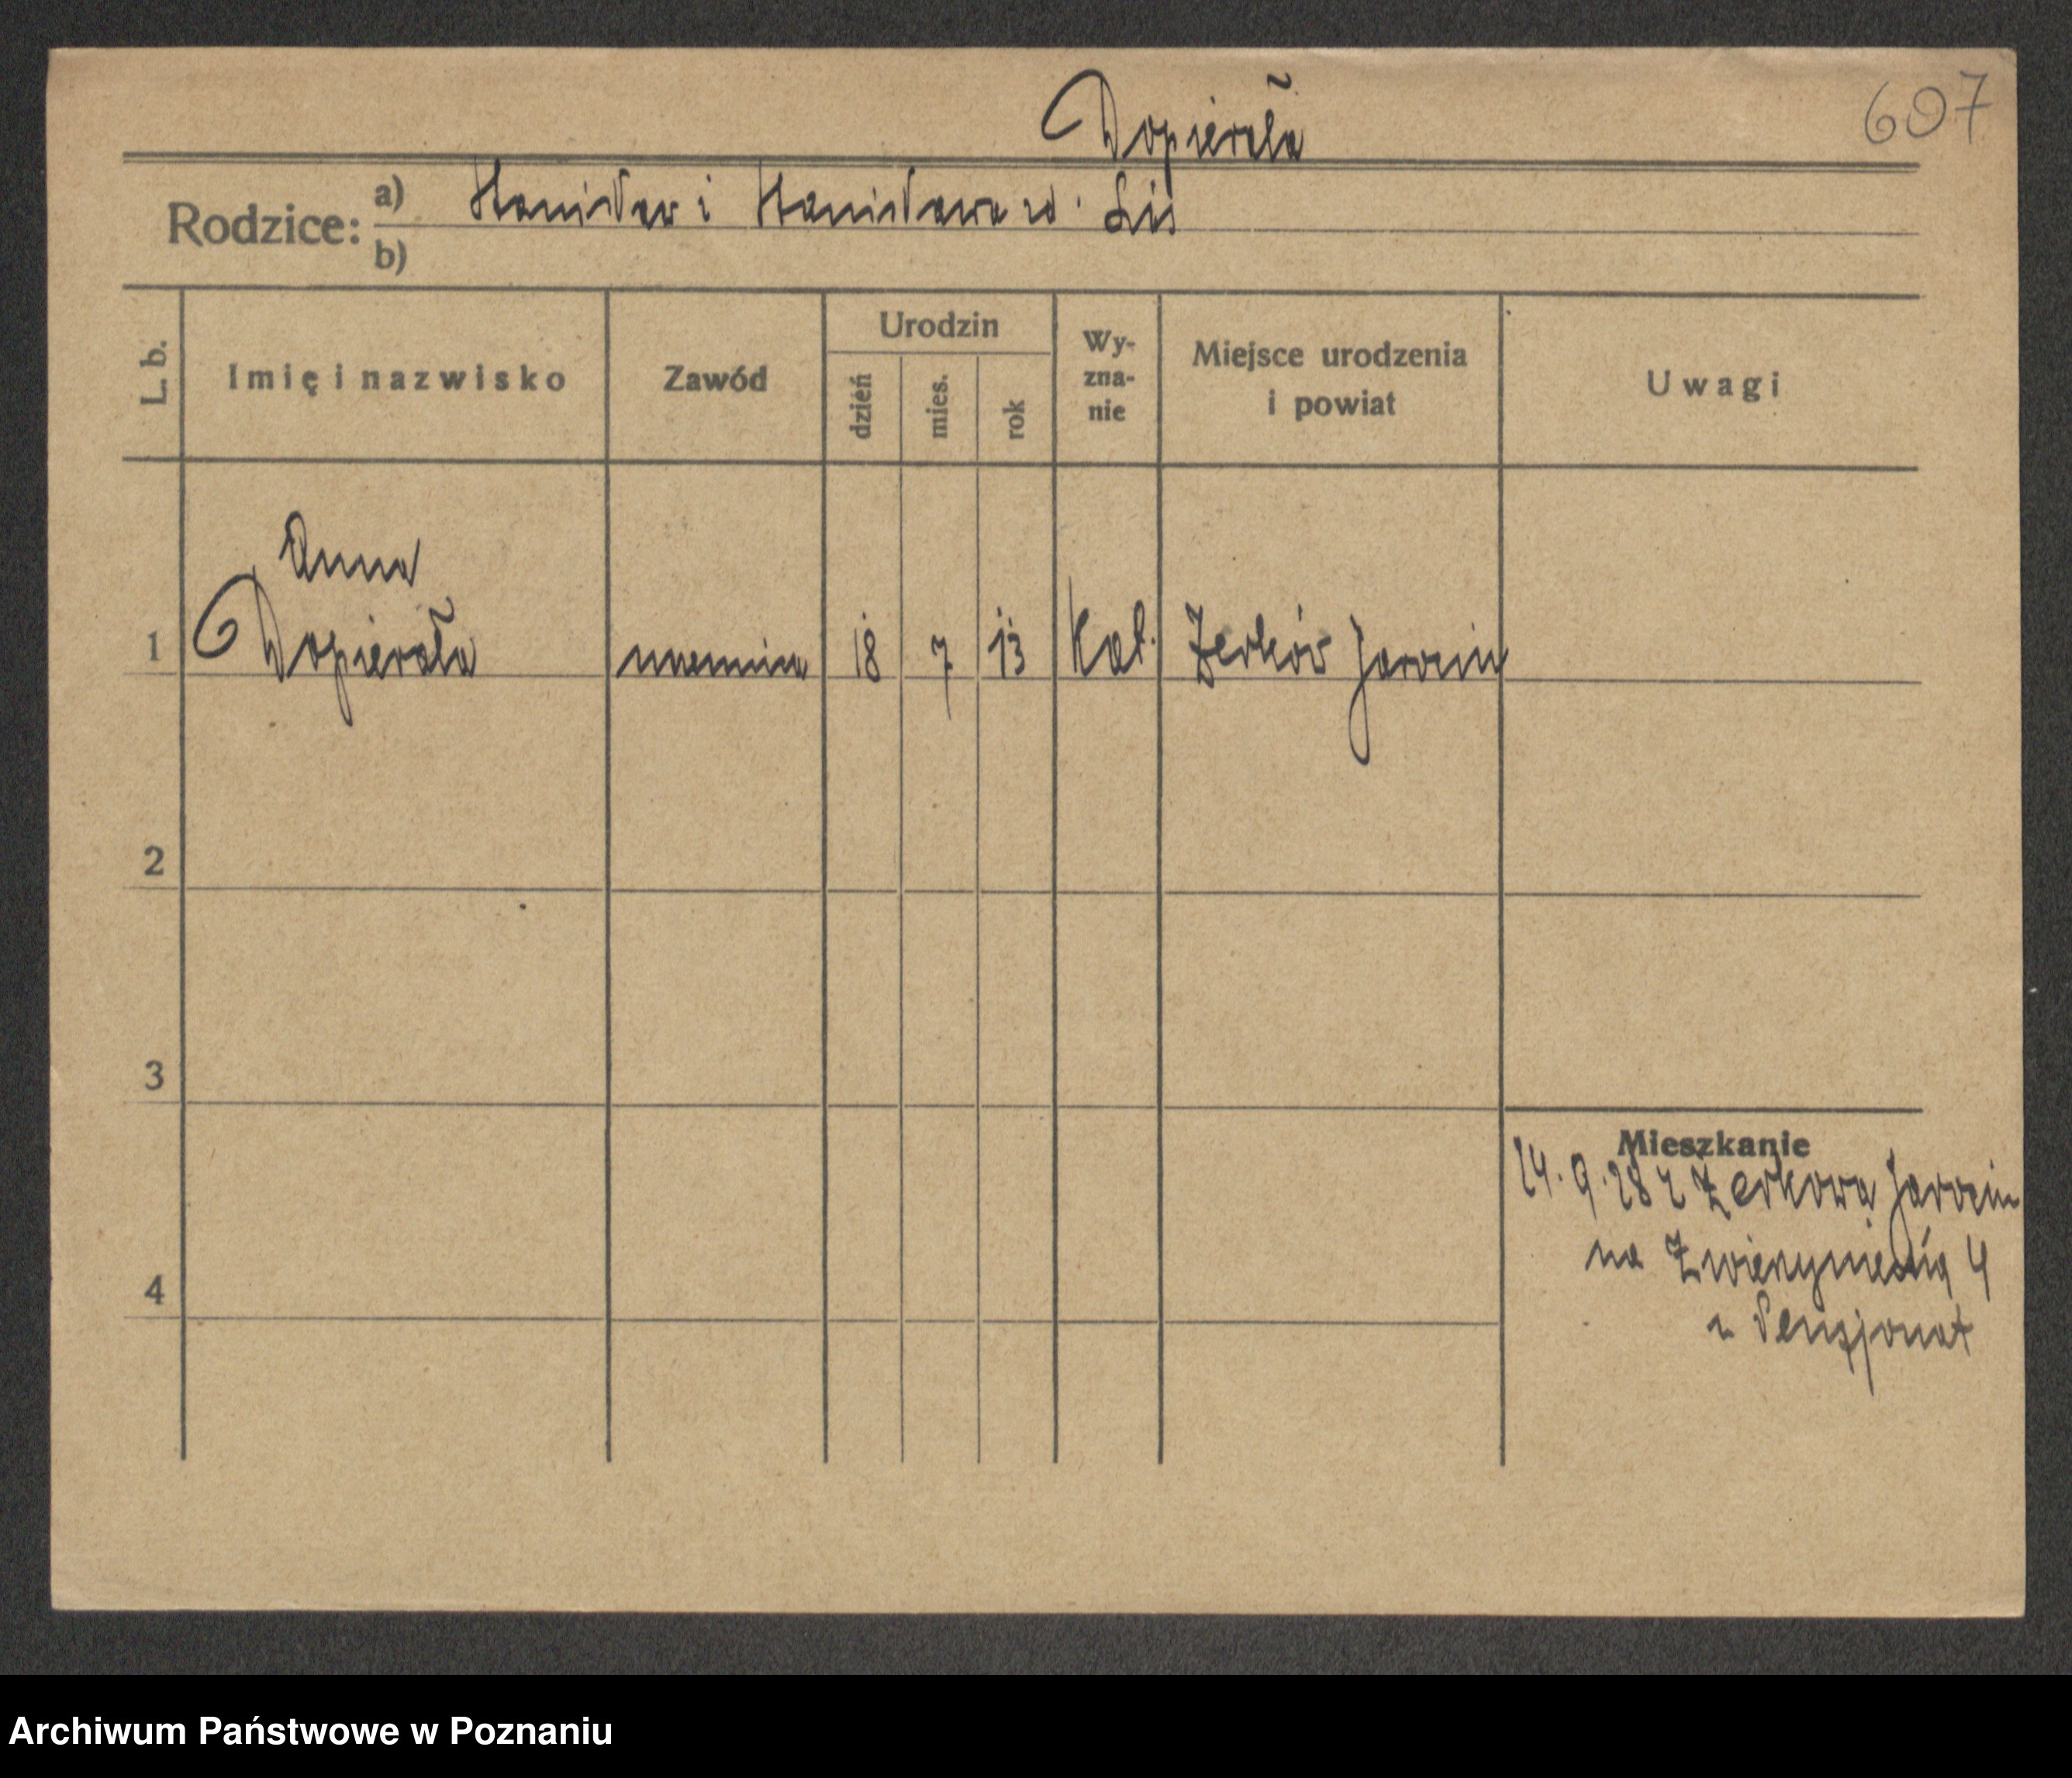 Dopierała
607
Rodzice: a) Stanisław i Stanisława ur. Lis
b)
L. b.
Imię i nazwisko
Zawód
Urodzin
dzień
mies.
rok
Wy-
zna-
nie
Miejsce urodzenia
i powiat
Uwagi
Anna
1 Dopierała uczennica 18 7 13 kat. Żerków Jarocin
2
3
4
Mieszkanie
14.9.28 z Żerkowa Jarocin
na Zwierzyniecką 4
Pensjonat
Archiwum Państwowe w Poznaniu